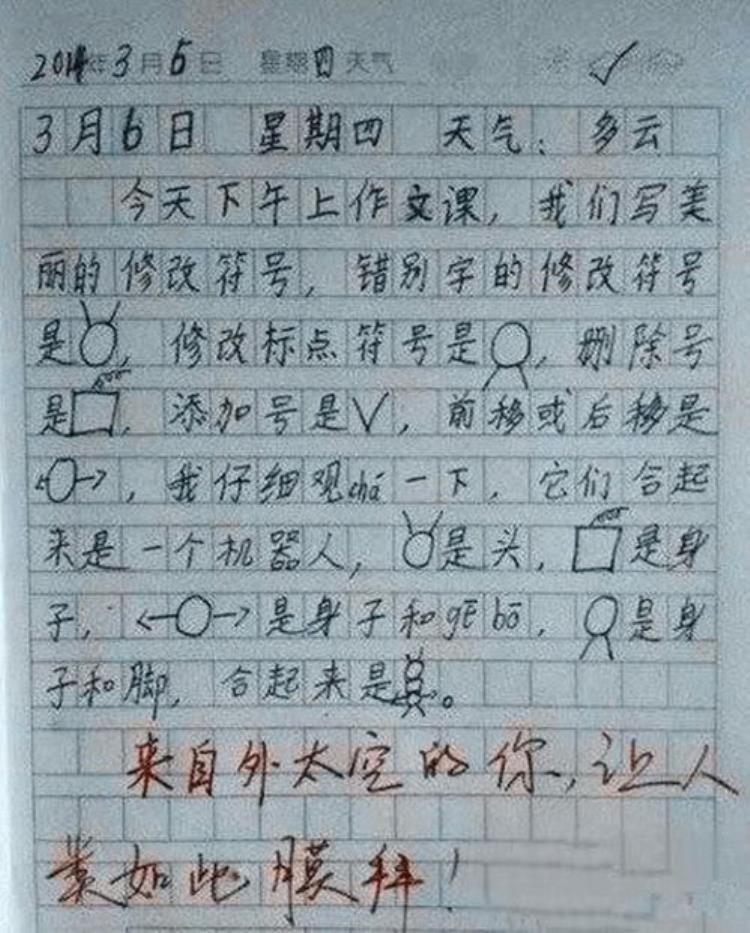 2014年3月6日 星期四天气 ✓
3月6日 星期四 天气：多云
今天下午上作文课，我们写美
丽的修改符号，错别字的修改符号
是，修改标点符号是，删除号
是，添加号是∨，前移或后移是
←○→，我仔细观chá一下，它们合起
来是一个机器人，是头，是身
子，←○→是身子和gē bō，是身
子和脚，合起来是。
来自外太空的你，让人
类如此膜拜！